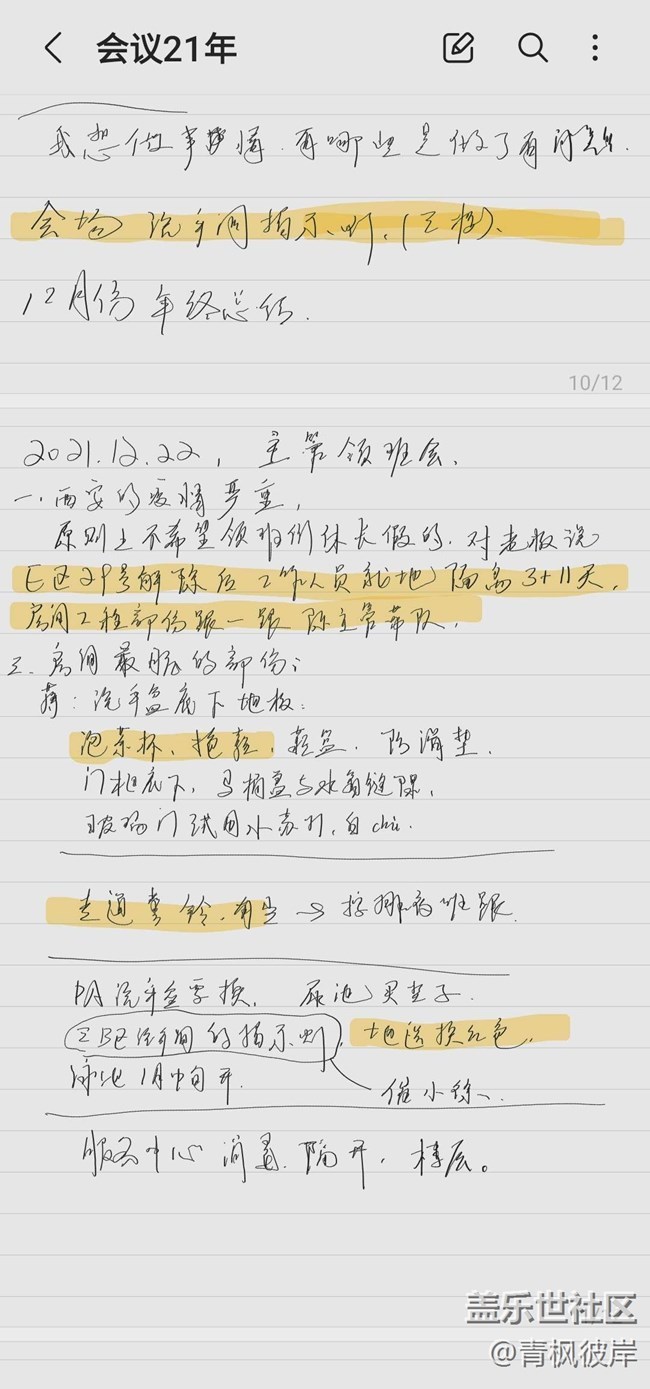 会议21年
我想做事情.再哪些是做了有问题.
会场 洗手间指示.(三楼).
12月份 年终总结.
10/12
2021.12.22, 主管领班会.
一.西安的疫情严重,
原则上不希望领班倒休长假的.对老板说
E区29号解除后工作人员就地隔离3+11天,
房间工程部份跟一跟 陈主管带队.
三.房间最脏的部份:
洗手盆底下地板:
泡茶杯、
防滑垫.
门框底下,马桶盖与水箱缝隙,
玻璃门试用小苏打,白chu.
夜班跟.
PA洗手盆要换, 尿池买垫子.
B区洗手间的指示 地毯换红色.
泳池1月中旬开.
催小
服务中心 消毒.隔开,楼层。
盖乐世社区
@青枫彼岸